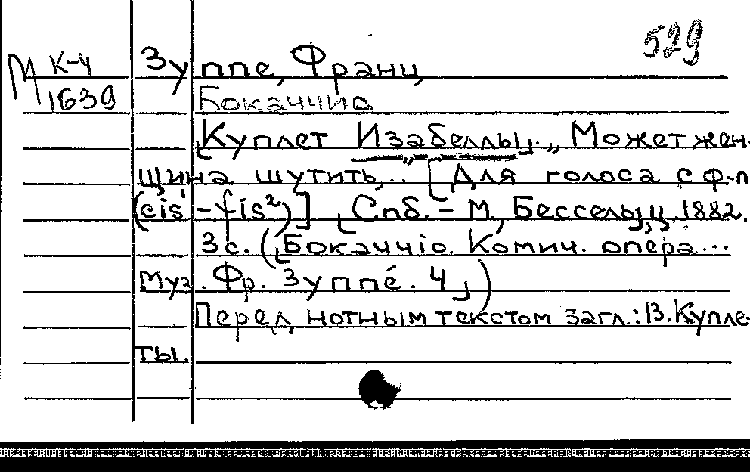 529
М К-4
1639
Зуппе, Франц
Бокаччио
[Куплет Изабеллы]. „Может жен-
щина шутить,.. [Для голоса с ф-п
(cis¹-fis²)] [Спб.-М., Бессель], ц. 1882.
3с. ([Боккачіо. Комич. опера...
Муз. Фр. Зуппе́. 4])
Перед нотным текстом загл.: 13. Купле-
ты.